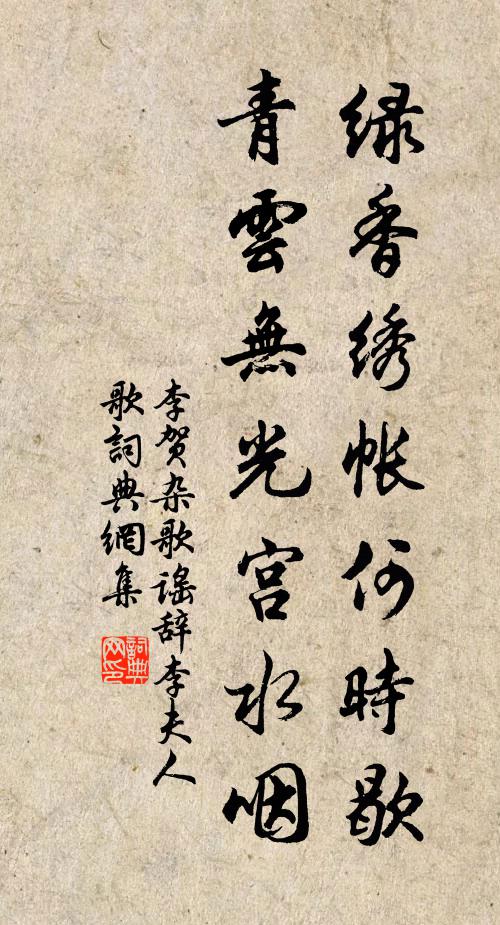 绿香绣帐何時歇
青雲無光宫水咽
李贺杂歌谣辞李夫人
歌詞典網集
詞典
网印